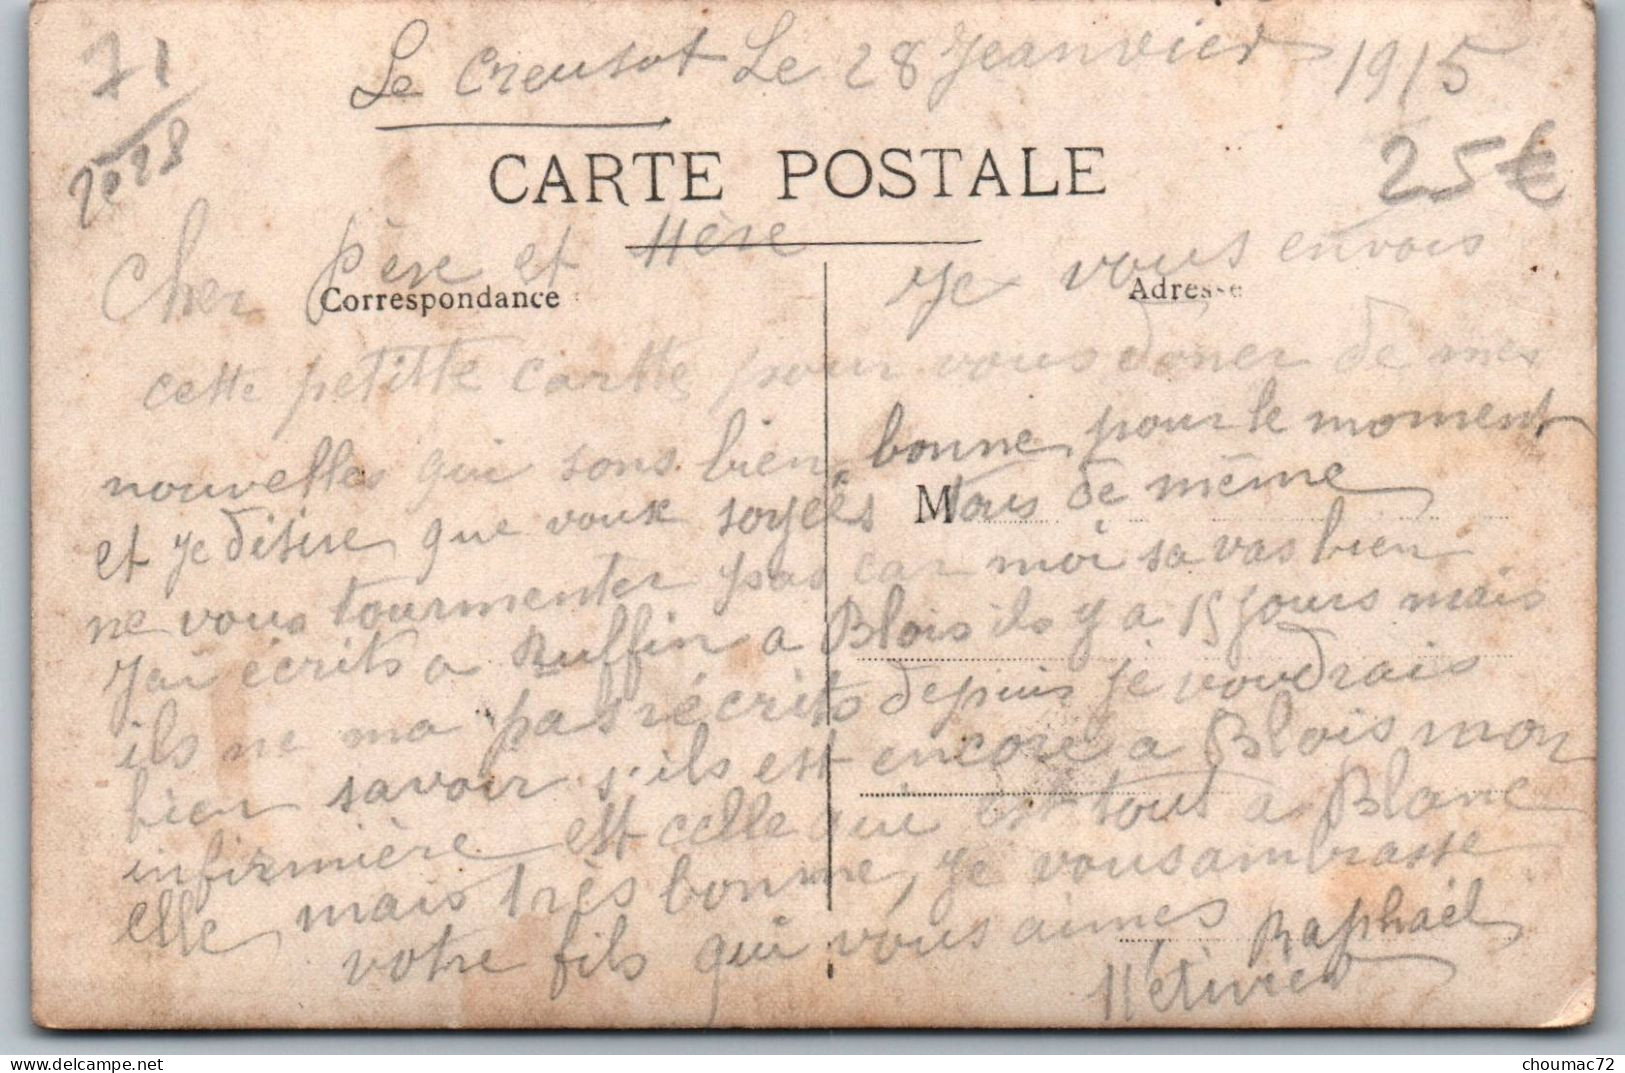 71
2028
Le Creusot Le 28 Jeanvier 1915
CARTE POSTALE
25€
Cher Père et Mère Je vous envois
Correspondance
Adresse
cette petitte cartte pour vous doner de mes
nouvelles qui sons bien bonne, pour le moment
M
et je désire que vous soyéés tous de même
ne vous tourmenter pas car moi sa vas bien
J'ai écrits a Ruffin a Blois ils y a 15 jours mais
ils ne ma pas récrits depuis je voudrais
bien savoir s'ils est encore a Blois mon
infirmière est celle qui est tout a Blanc
elle, mais très bonne, je vous ambrasse
votre fils qui vous aimes Raphaël
Métivier
choumac72